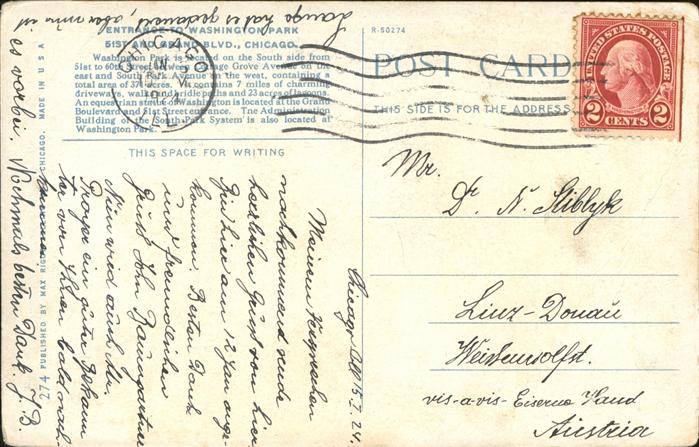 ENTRANCE TO WASHINGTON PARK
51ST AND GRAND BLVD., CHICAGO.
Washington Park is located on the South side from
51st to 60th Street between Cottage Grove Avenue on the
east and South Park Avenue on the west, containing a
total area of 371 acres. It contains 7 miles of charming
driveways, walks and bridle paths and 23 acres of lagoons.
An equestrian statue of Washington is located at the Grand
Boulevard and 51st Street entrance. The Administration
Building of the South Park System is also located at
Washington Park.
THIS SPACE FOR WRITING
R-50274
POST CARD
THIS SIDE IS FOR THE ADDRESS
UNITED STATES POSTAGE
2 2
CENTS
CHICAGO
274 PUBLISHED BY MAX RIGOT CHICAGO. MADE IN U S A
Mr.
Dr. N. Stiblyk
Linz-Donau
vis-a-vis- Eiserne Hand
Austria
Chicago Ill 15 I. 24.
Meinem Versprechen
nachkommend sende
herzlichen Gruss von hier.
Bin hier am 12 Jan ange-
kommen. Besten Dank
und freundlichen
Gruss John Baumgartner
Nun wird auch Ihr
ein guter Bekannter
von Ihnen bald nach-
Lange hat es gedauert, aber nun ist
es vorbei. Nochmals besten Dank J.B.